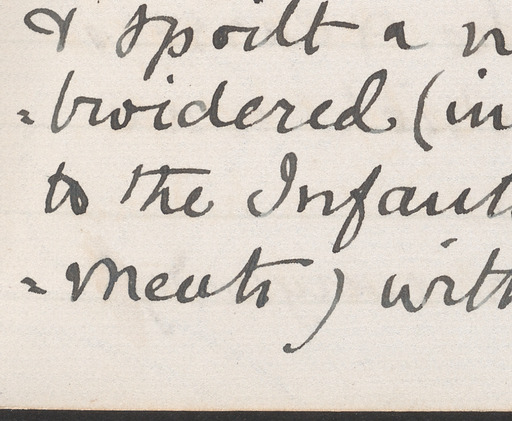 & spoilt a n
=broidered (in
to the Infant
=ments) with